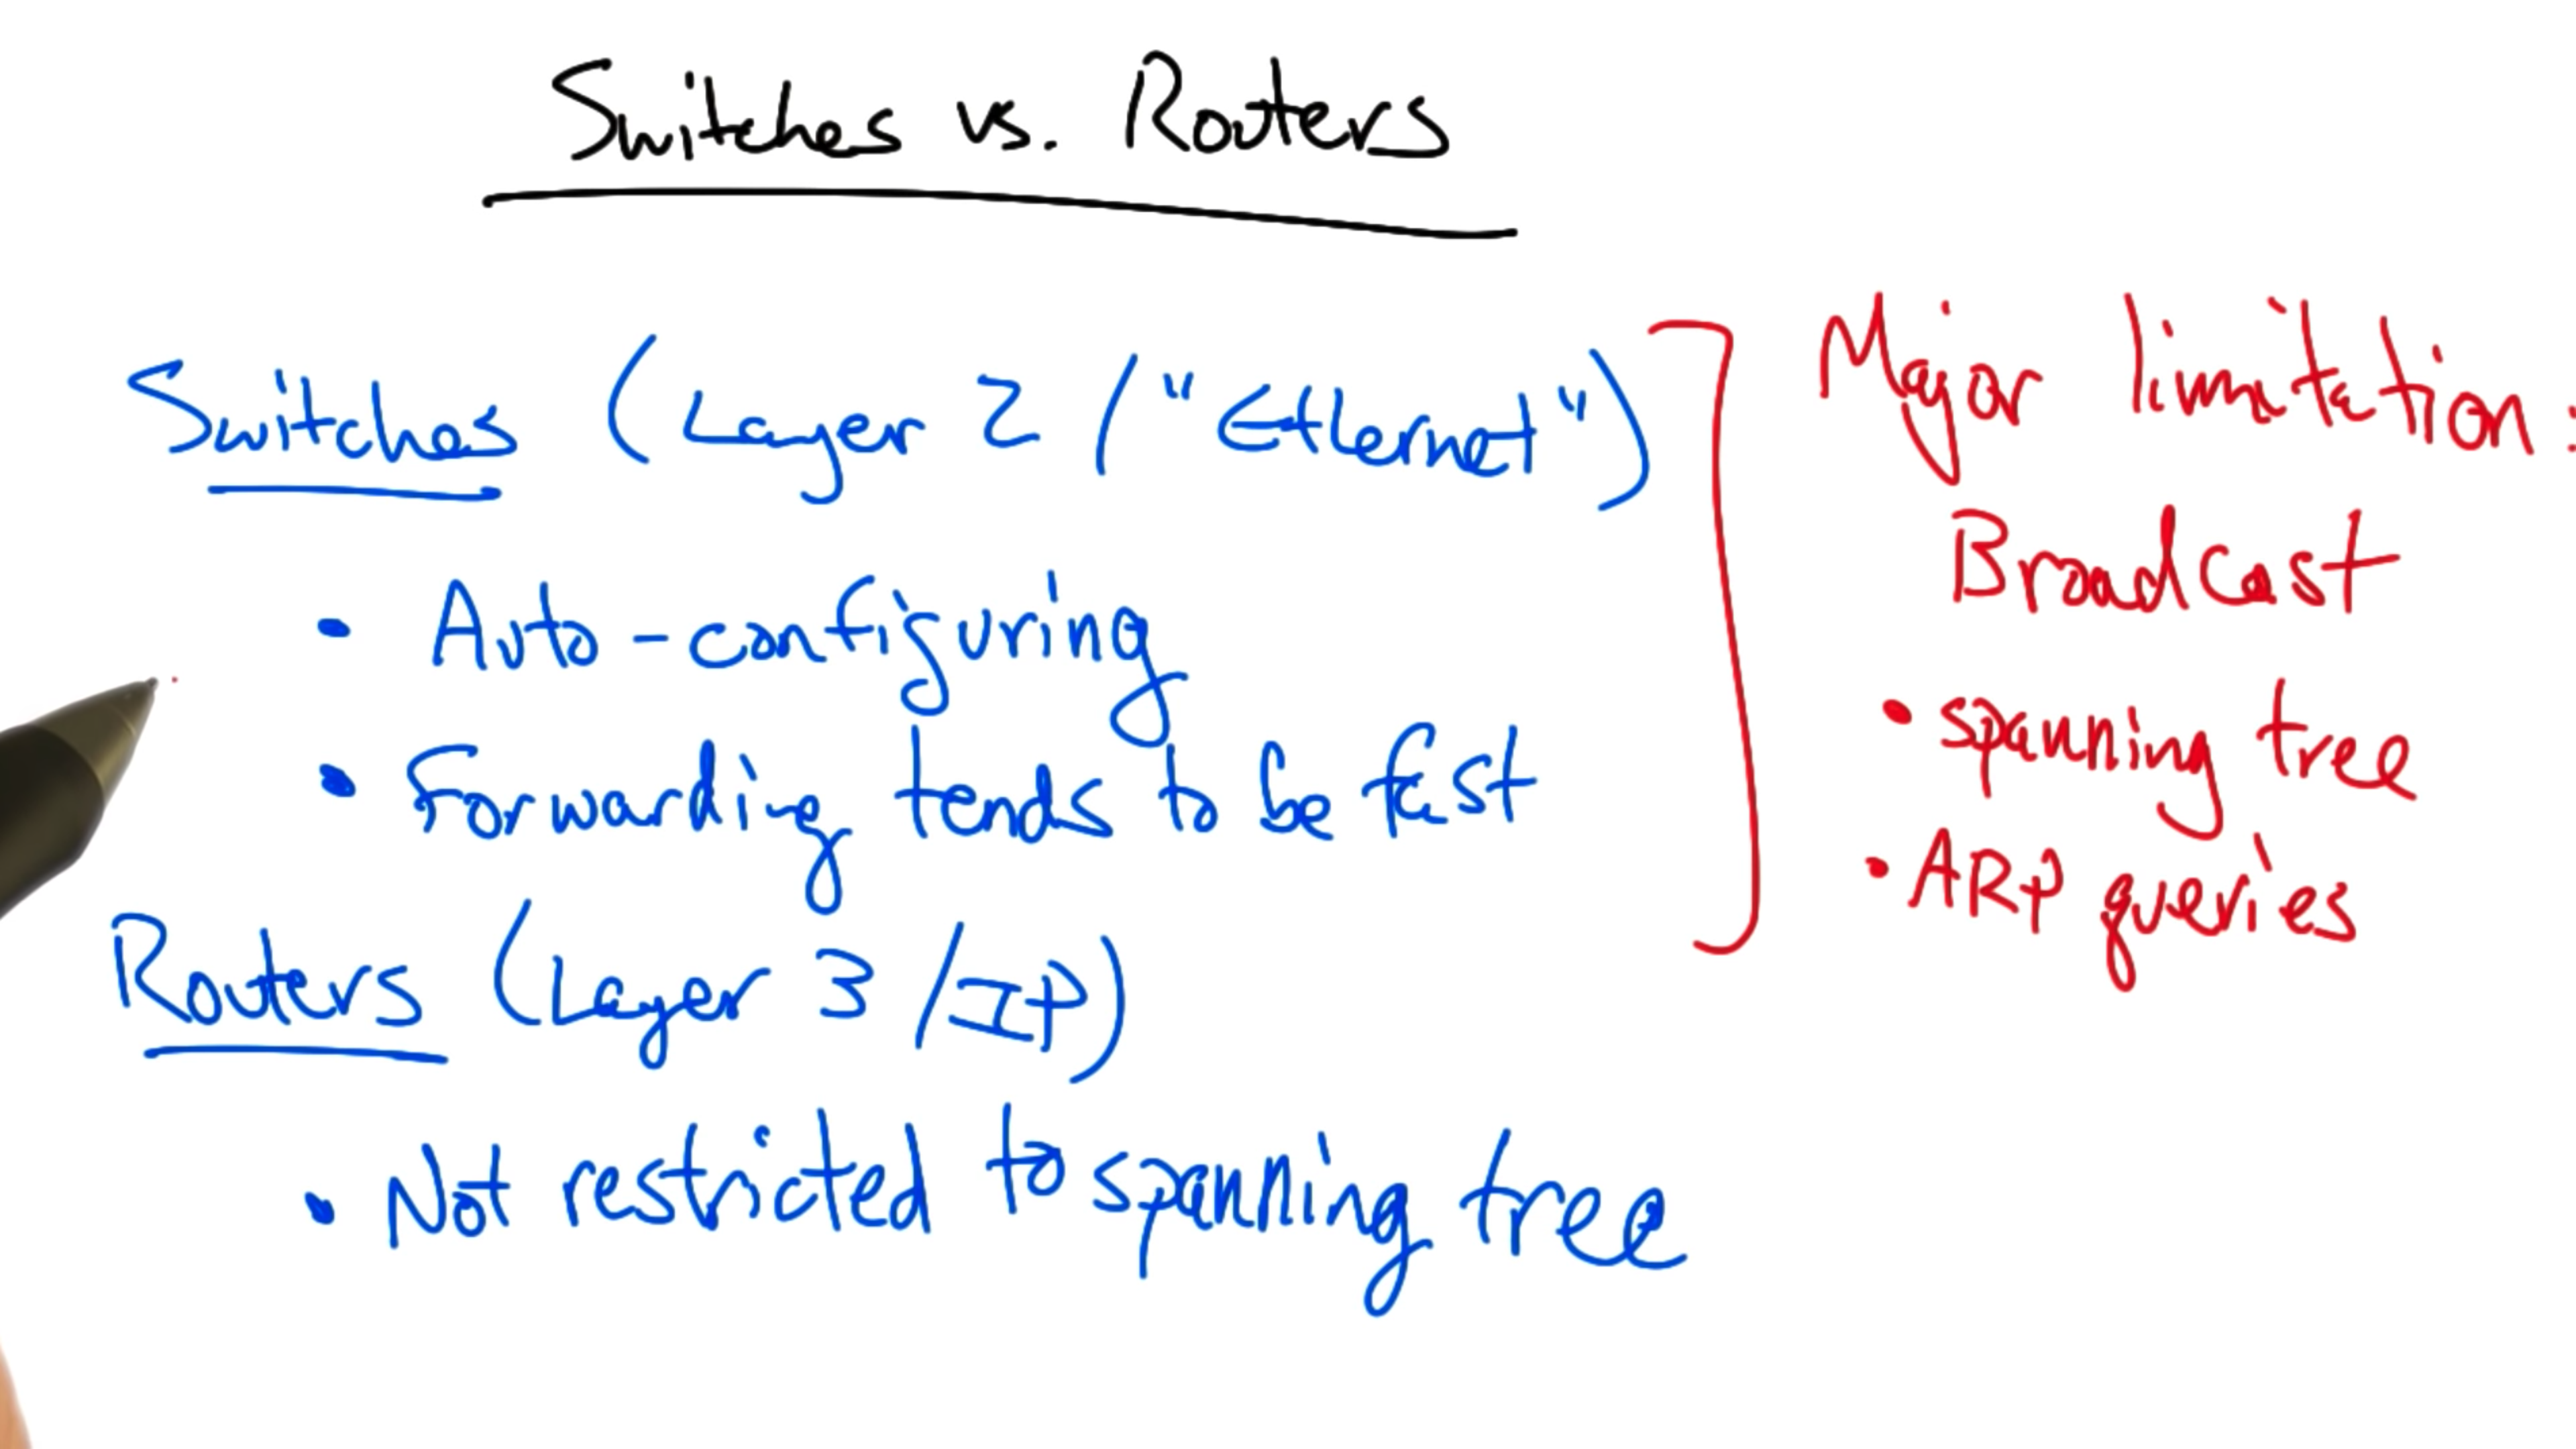 Switches vs. Routers
Switches (Layer 2 / "Ethernet")
• Auto-configuring
• Forwarding tends to be fast
Routers (Layer 3 / IP)
• Not restricted to spanning tree
Major limitation:
Broadcast
• spanning tree
• ARP queries